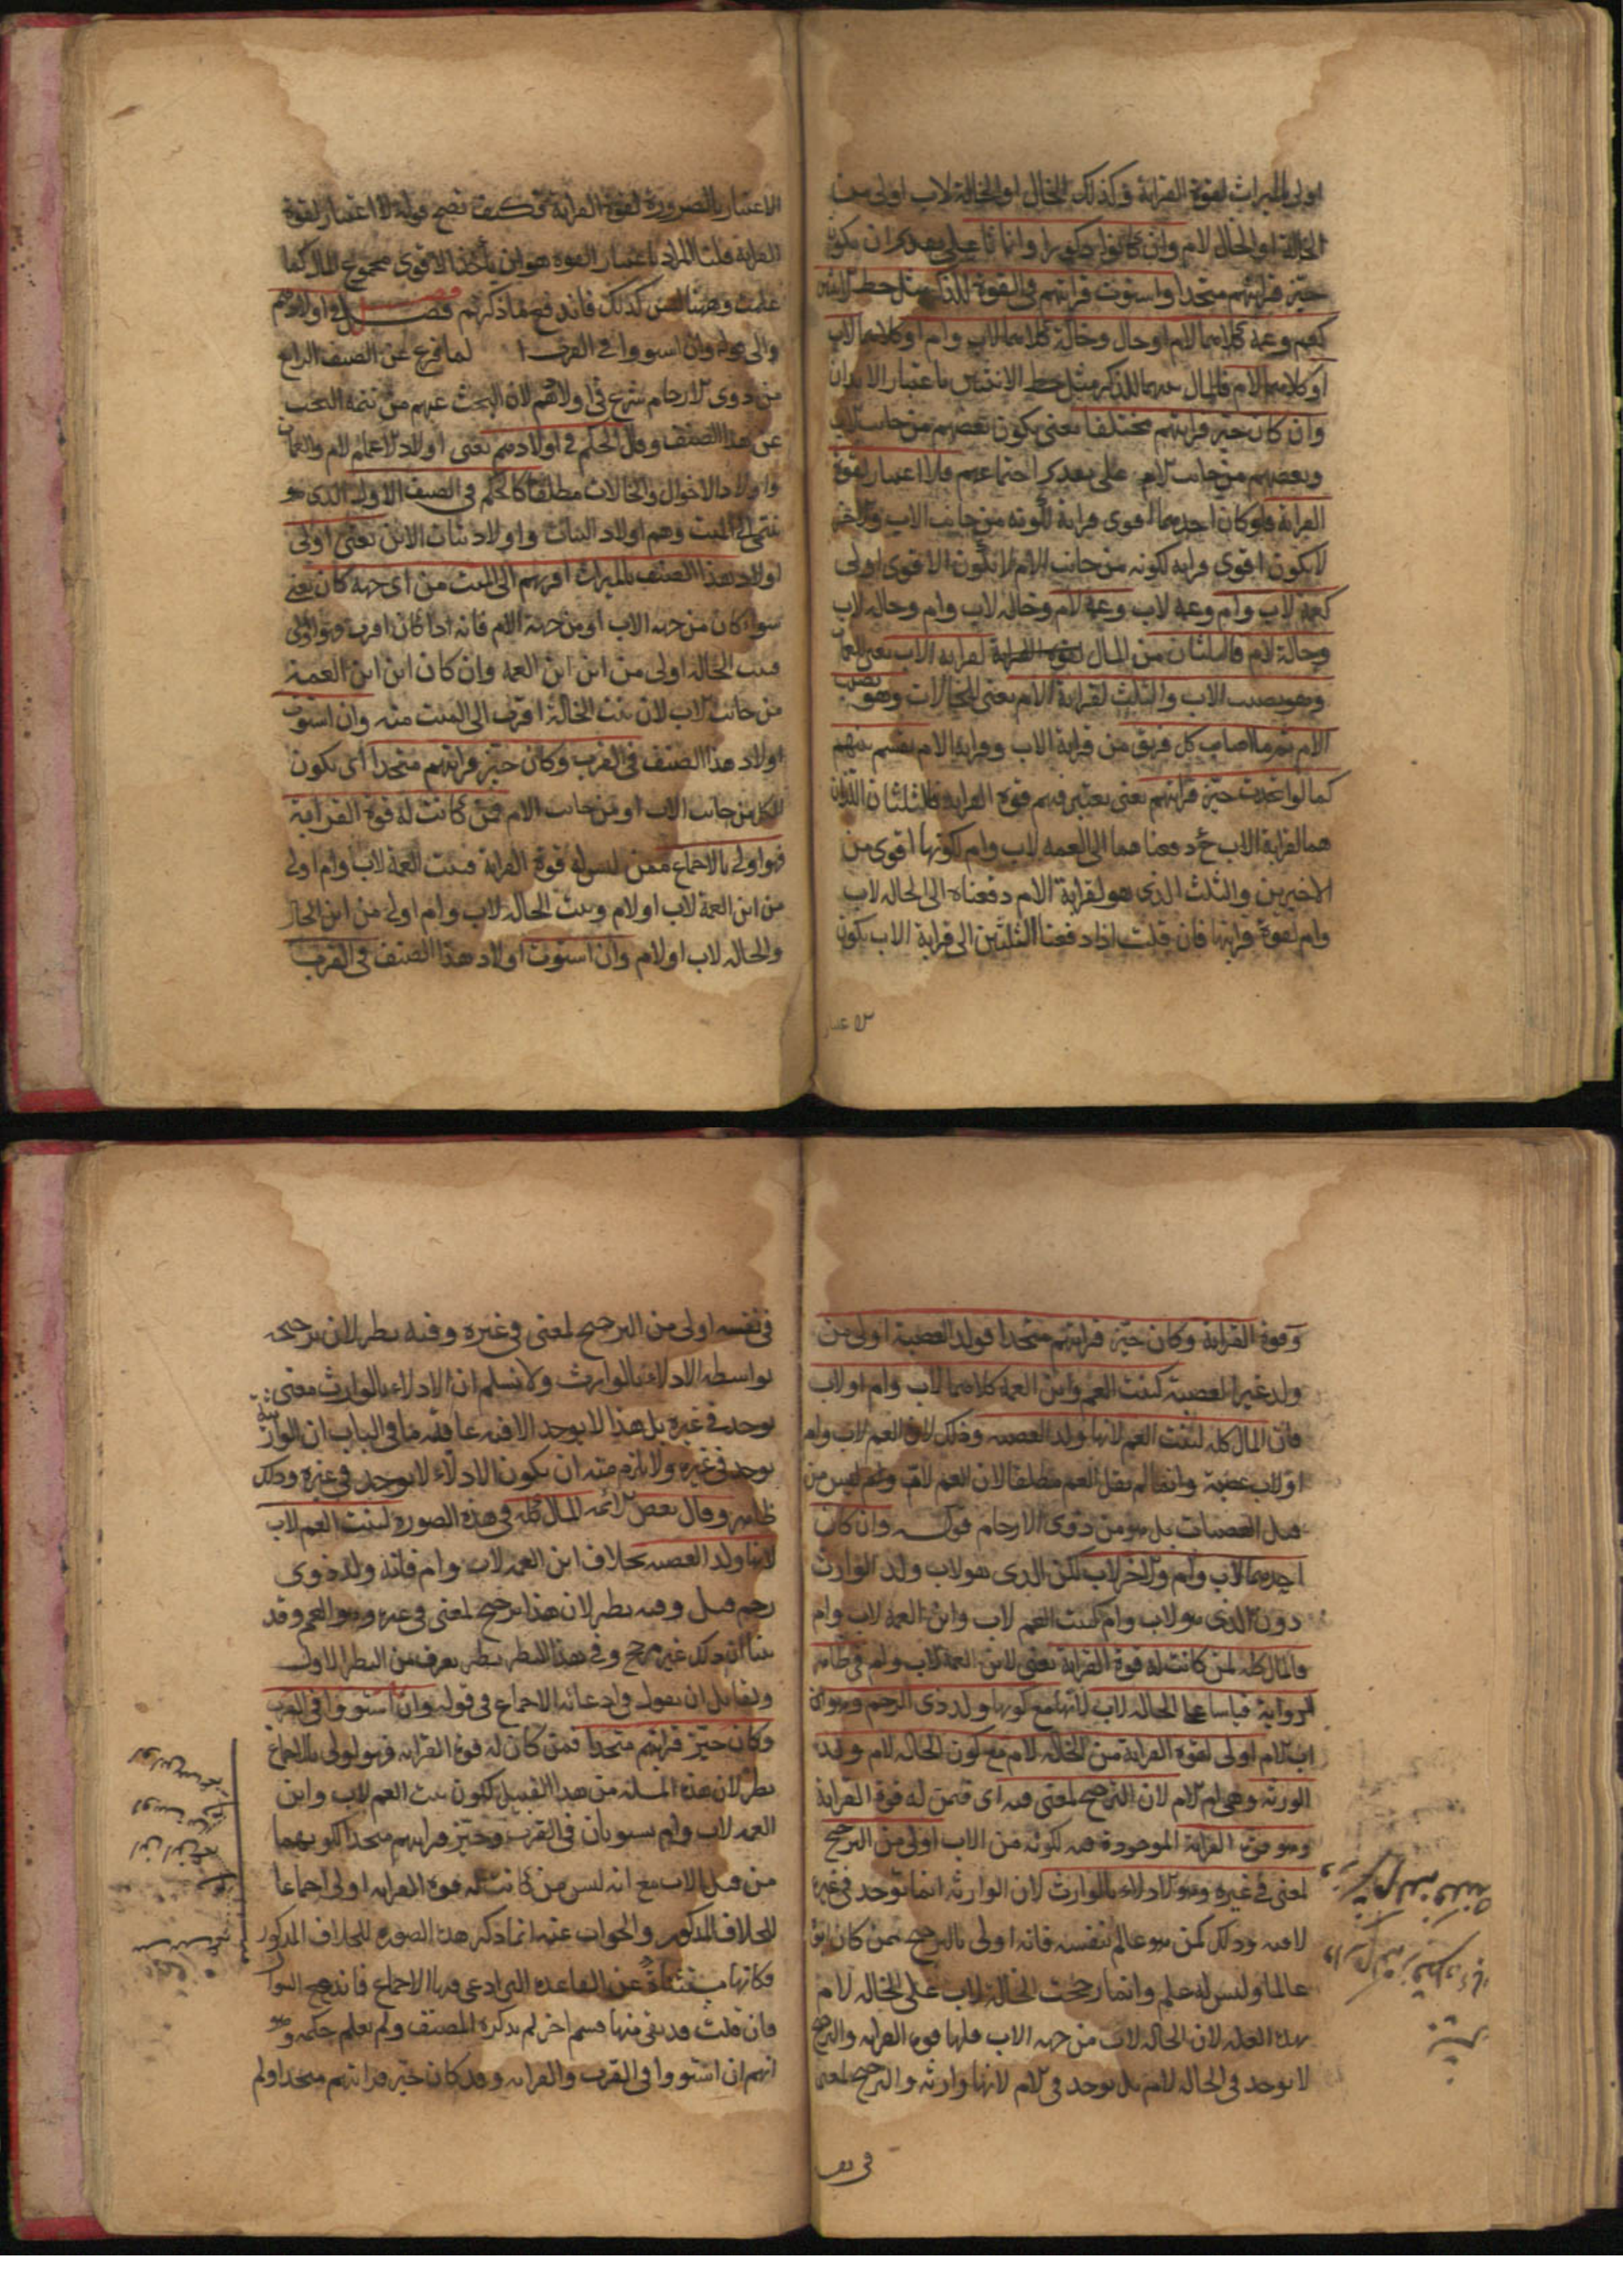 اولى بالميراث لقوة القرابة وكذلك الخال او الخالة لاب اولى من
الخالة او الخال لام وان كانوا ذكورا واناثا على تقدير ان يكون
حيز قرابتهم متحدا واستوت قرابتهم فى القوة للذكر مثل حظ الانثيين
كعم وعمة كلاهما لام او خال وخالة كلاهما لاب وام او كلاهما لاب
او كلاهما لام فالمال بينهما للذكر مثل حظ الانثيين باعتبار الابدان
وان كان حيز قرابتهم مختلفا يعنى يكون بعضهم من جانب الاب
وبعضهم من جانب الام على تقدير اجتماعهم فلا اعتبار لقوة
القرابة فلو كان احدهما اقوى قرابة لكونه من جانب الاب والاخر
لا يكون اقوى قرابة لكونه من جانب الام لا يكون الاقوى اولى
كعمة لاب وام وعمة لاب وعمة لام وخالة لاب وام وخالة لاب
وخالة لام فالثلثان من المال لقرابة الاب يعنى العمات
وهو نصيب الاب والثلث لقرابة الام يعنى للخالات وهو نصيب
الام ثم ما اصاب كل فريق من قرابة الاب وقرابة الام يقسم بينهم
كما لو اتحدت حيز قرابتهم يعنى يعتبر فيهم قوة القرابة فالثلثان اللذان
هما لقرابة الاب ح دفعناهما الى العمة لاب وام لكونها اقوى من
الاخيرين والثلث الذى هو لقرابة الام دفعناه الى الخالة لاب
وام لقوة قرابتها فان قلت اذا دفعنا الثلثين الى قرابة الاب يكون
الاعتبار
الاعتبار بالضرورة لقوة القرابة فكيف يصح قوله لا اعتبار لقوة
القرابة قلنا المراد باعتبار القوة هو ان يأخذ الاقوى مجموع المال كما
علمت وههنا ليس كذلك فاندفع ما ذكرتم فصل فى اولادهم
لما فرغ عن الصنف الرابع
من ذوى الارحام شرع فى اولادهم لان البحث عنهم من تتمة البحث
عن هذا الصنف وقال الحكم فى اولادهم يعنى اولاد الاعمام لام والعمات
واولاد الاخوال والخالات مطلقا كالحكم فى الصنف الاول الذى هو
ينتمى الى الميت وهم اولاد البنات واولاد بنات الابن يعنى اولى
اولاد هذا الصنف بالميراث اقربهم الى الميت من اى جهة كان يعنى
سواء كان من جهة الاب او من جهة الام فانه اذا كان اقرب فهو اولى
فبنت الخالة اولى من ابن ابن العمة وان كان ابن ابن العمة
من جانب الاب لان بنت الخالة اقرب الى الميت منه وان استوت
اولاد هذا الصنف فى القرب وكان حيز قرابتهم متحدا اى يكون
الكل من جانب الاب او من جانب الام فمن كانت له قوة القرابة
فهو اولى بالاجماع ممن ليس له قوة القرابة فبنت العمة لاب وام اولى
من ابن العمة لاب او لام وبنت الخالة لاب وام اولى من ابن الخال
والخالة لاب او لام وان استوت اولاد هذا الصنف فى القرب
وقوة القرابة وكان حيز قرابتهم متحدا فولد العصبة اولى من
ولد غير العصبة كبنت العم وابن العمة كلاهما لاب وام او لاب
فان المال كله لبنت العم لانها ولد العصبة وذلك لان العم لاب وام
او لاب عصبة وانما لم يقل العم مطلقا لان العم لام ليس من
قبل العصبات بل هو من ذوى الارحام قوله وان كان
احدهما لاب وام والاخر لاب لكن الذى هو لاب ولد الوارث
دون الذى هو لاب وام كبنت العم لاب وابن العمة لاب وام
فالمال كله لمن كانت له قوة القرابة يعنى لابن العمة لاب وام فى ظاهر
الرواية قياسا على الخالة لاب لانها مع كونها ولد ذى الرحم وهو
اب الام اولى لقوة القرابة من الخالة لام مع كون الخالة لام ولد
الوارثة وهى ام الام لان الترجيح لمعنى فيه اى فيمن له قوة القرابة
وهو قوة القرابة الموجودة فيه لكونه من الاب اولى من الترجيح
لمعنى فى غيره وهو الادلاء بالوارث لان الوارثة انما توجد فى غيره
لا فيه وذلك كمن هو عالم بنفسه فانه اولى بالترجيح ممن كان ابوه
عالما وليس له علم وانما رجحت الخالة لاب على الخالة لام
بهذه العلة لان الخالة لاب من جهة الاب فلها قوة القرابة والترجيح
لا يوجد فى الخالة لام بل يوجد فى الام لانها وارثة والترجيح لمعنى
فى نفسه
فى نفسه اولى من الترجيح لمعنى فى غيره وفيه نظر لان ترجيحه
بواسطة الادلاء بالوارث ولا نسلم ان الادلاء بالوارث معنى
يوجد فى غيره بل هذا لا يوجد الا فيه غاية ما فى الباب ان الوارثية
يوجد فى غيره ولا يلزم منه ان يكون الادلاء لا يوجد فى غيره وذلك
ظاهر وقال بعض الائمة المال كله فى هذه الصورة لبنت العم لاب
لانها ولد العصبة بخلاف ابن العمة لاب وام فانه ولد ذوى
رحم قيل وفيه نظر لان هذا ترجيح لمعنى فى غيره وهو العم وقد
بينا ان ذلك غير مرجح وفى هذا النظر نظر يعرف من النظر الاول
ولقائل ان يقول فى ادعائه الاجماع فى قوله وان استووا فى القرب
وكان حيز قرابتهم متحدا فمن كان له قوة القرابة فهو اولى بالاجماع
نظر لان هذه المسئلة من هذا القبيل لكون بنت العم لاب وابن
العمة لاب وام يستويان فى القرب وحيز قرابتهم متحدا لكونهما
من قبل الاب مع انه ليس من كانت له قوة القرابة اولى اجماعا
للخلاف المذكور والجواب عنه انما ذكر هذه الصورة للخلاف المذكور
فكانها مستثناة عن القاعدة التى ادعى فيها الاجماع فاندفع السؤال
فان قلت قد بقى منها قسم اخر لم يذكره المصنف ولم يعلم حكمه وهو
انهم ان استووا فى القرب والقرابة وقد كان حيز قرابتهم متحدا ولم